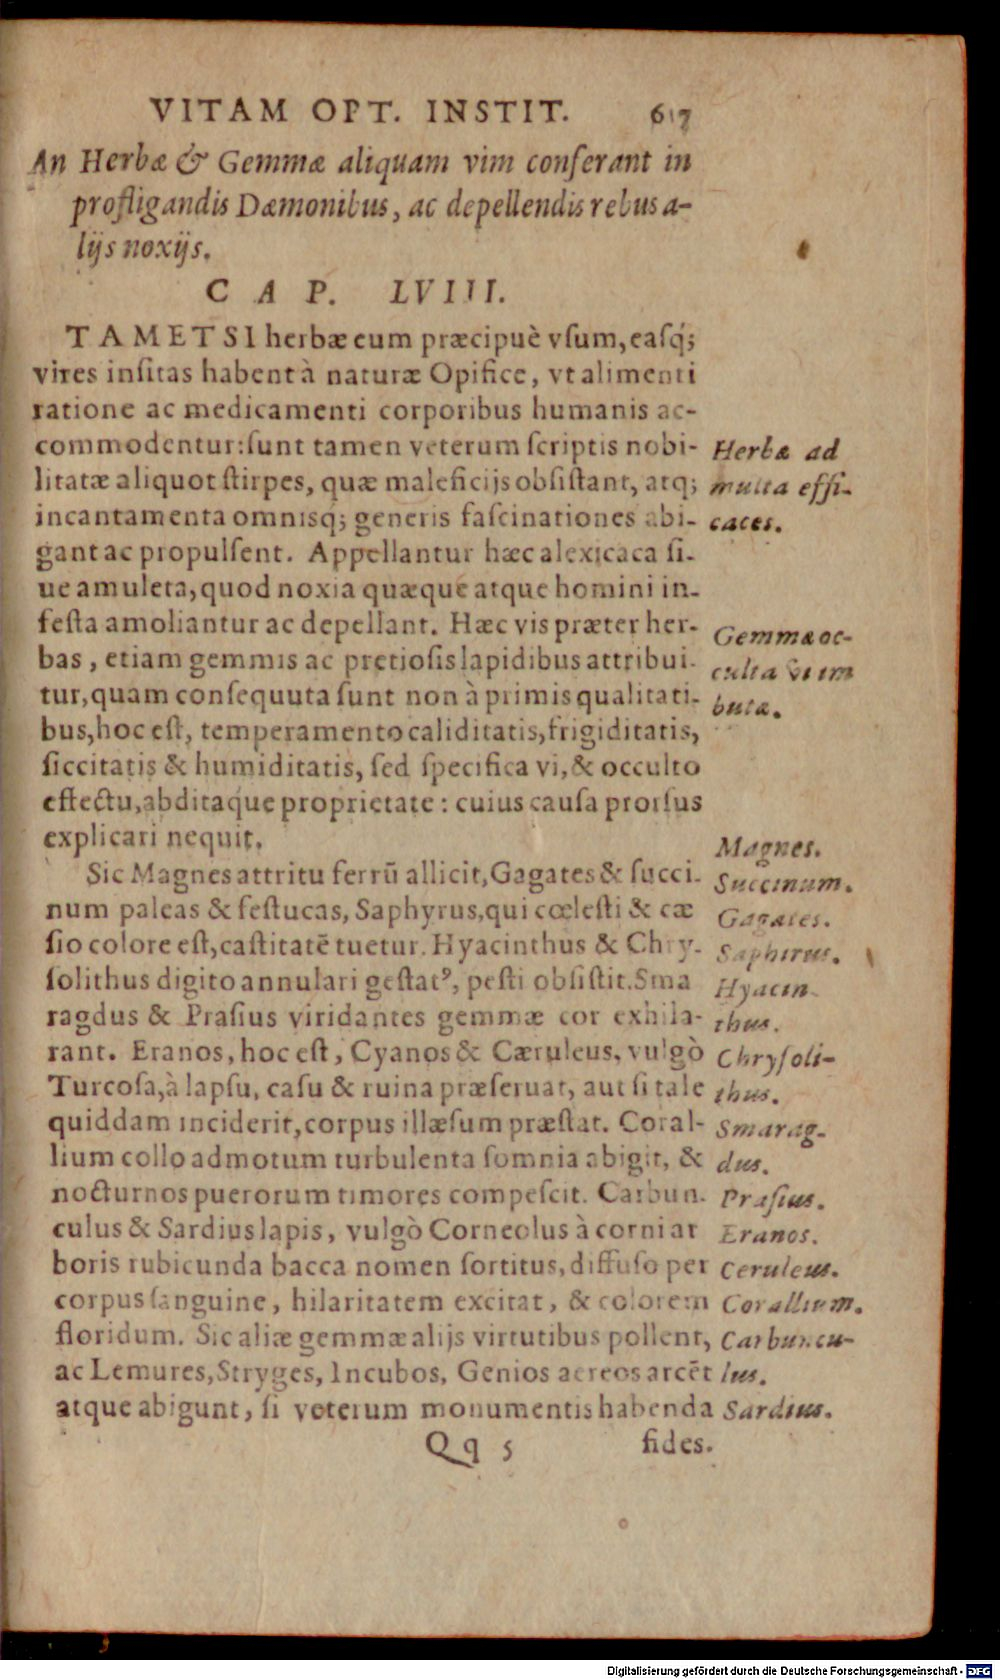 VITAM OPT. INSTIT. 617
An Herbæ & Gemmæ aliquam vim conferant in
profligandis Dæmonibus, ac depellendis rebus a-
lijs noxijs.
CAP. LVIII.
TAMETSI herbæ eum præcipuè vsum, easq́;
vires insitas habent à naturæ Opifice, vt alimenti
ratione ac medicamenti corporibus humanis ac-
commodentur: sunt tamen veterum scriptis nobi-
litatæ aliquot stirpes, quæ maleficijs obsistant, atq;
incantamenta omnisq́; generis fascinationes abi-
gant ac propulsent. Appellantur hæc alexicaca si-
ue amuleta, quod noxia quæque atque homini in-
festa amoliantur ac depellant. Hæc vis præter her-
bas, etiam gemmis ac pretiosis lapidibus attribui-
tur, quam consequuta sunt non à primis qualitati-
bus, hoc est, temperamento caliditatis, frigiditatis,
siccitatis & humiditatis, sed specifica vi, & occulto
effectu, abditaq́ue proprietate: cuius causa prorsus
explicari nequit.
Sic Magnes attritu ferrū allicit, Gagates & succi-
num paleas & festucas, Saphyrus, qui cœlesti & cæ
sio colore est, castitatē tuetur. Hyacinthus & Chry-
solithus digito annulari gestatꝰ, pesti obsistit. Sma
ragdus & Prasius viridantes gemmæ cor exhila-
rant. Eranos, hoc est, Cyanos & Cæruleus, vulgò
Turcosa, à lapsu, casu & ruina præseruat, aut si tale
quiddam inciderit, corpus illæsum præstat. Coral-
lium collo admotum turbulenta somnia abigit, &
nocturnos puerorum timores compescit. Carbun-
culus & Sardius lapis, vulgò Corneolus à corni ar
boris rubicunda bacca nomen sortitus, diffuso per
corpus sanguine, hilaritatem excitat, & colorem
floridum. Sic aliæ gemmæ alijs virtutibus pollent,
ac Lemures, Stryges, Incubos, Genios aereos arcēt
atque abigunt, si veterum monumentis habenda
Qq 5 fides.
Herbæ ad
multa effi-
caces.
Gemmæ oc-
culta vi im
butæ.
Magnes.
Succinum.
Gagates.
Saphirus.
Hyacin-
thus.
Chrysoli-
thus.
Smarag-
dus.
Prasius.
Eranos.
Ceruleus.
Corallium.
Carbuncu-
lus.
Sardius.
Digitalisierung gefördert durch die Deutsche Forschungsgemeinschaft - DFG